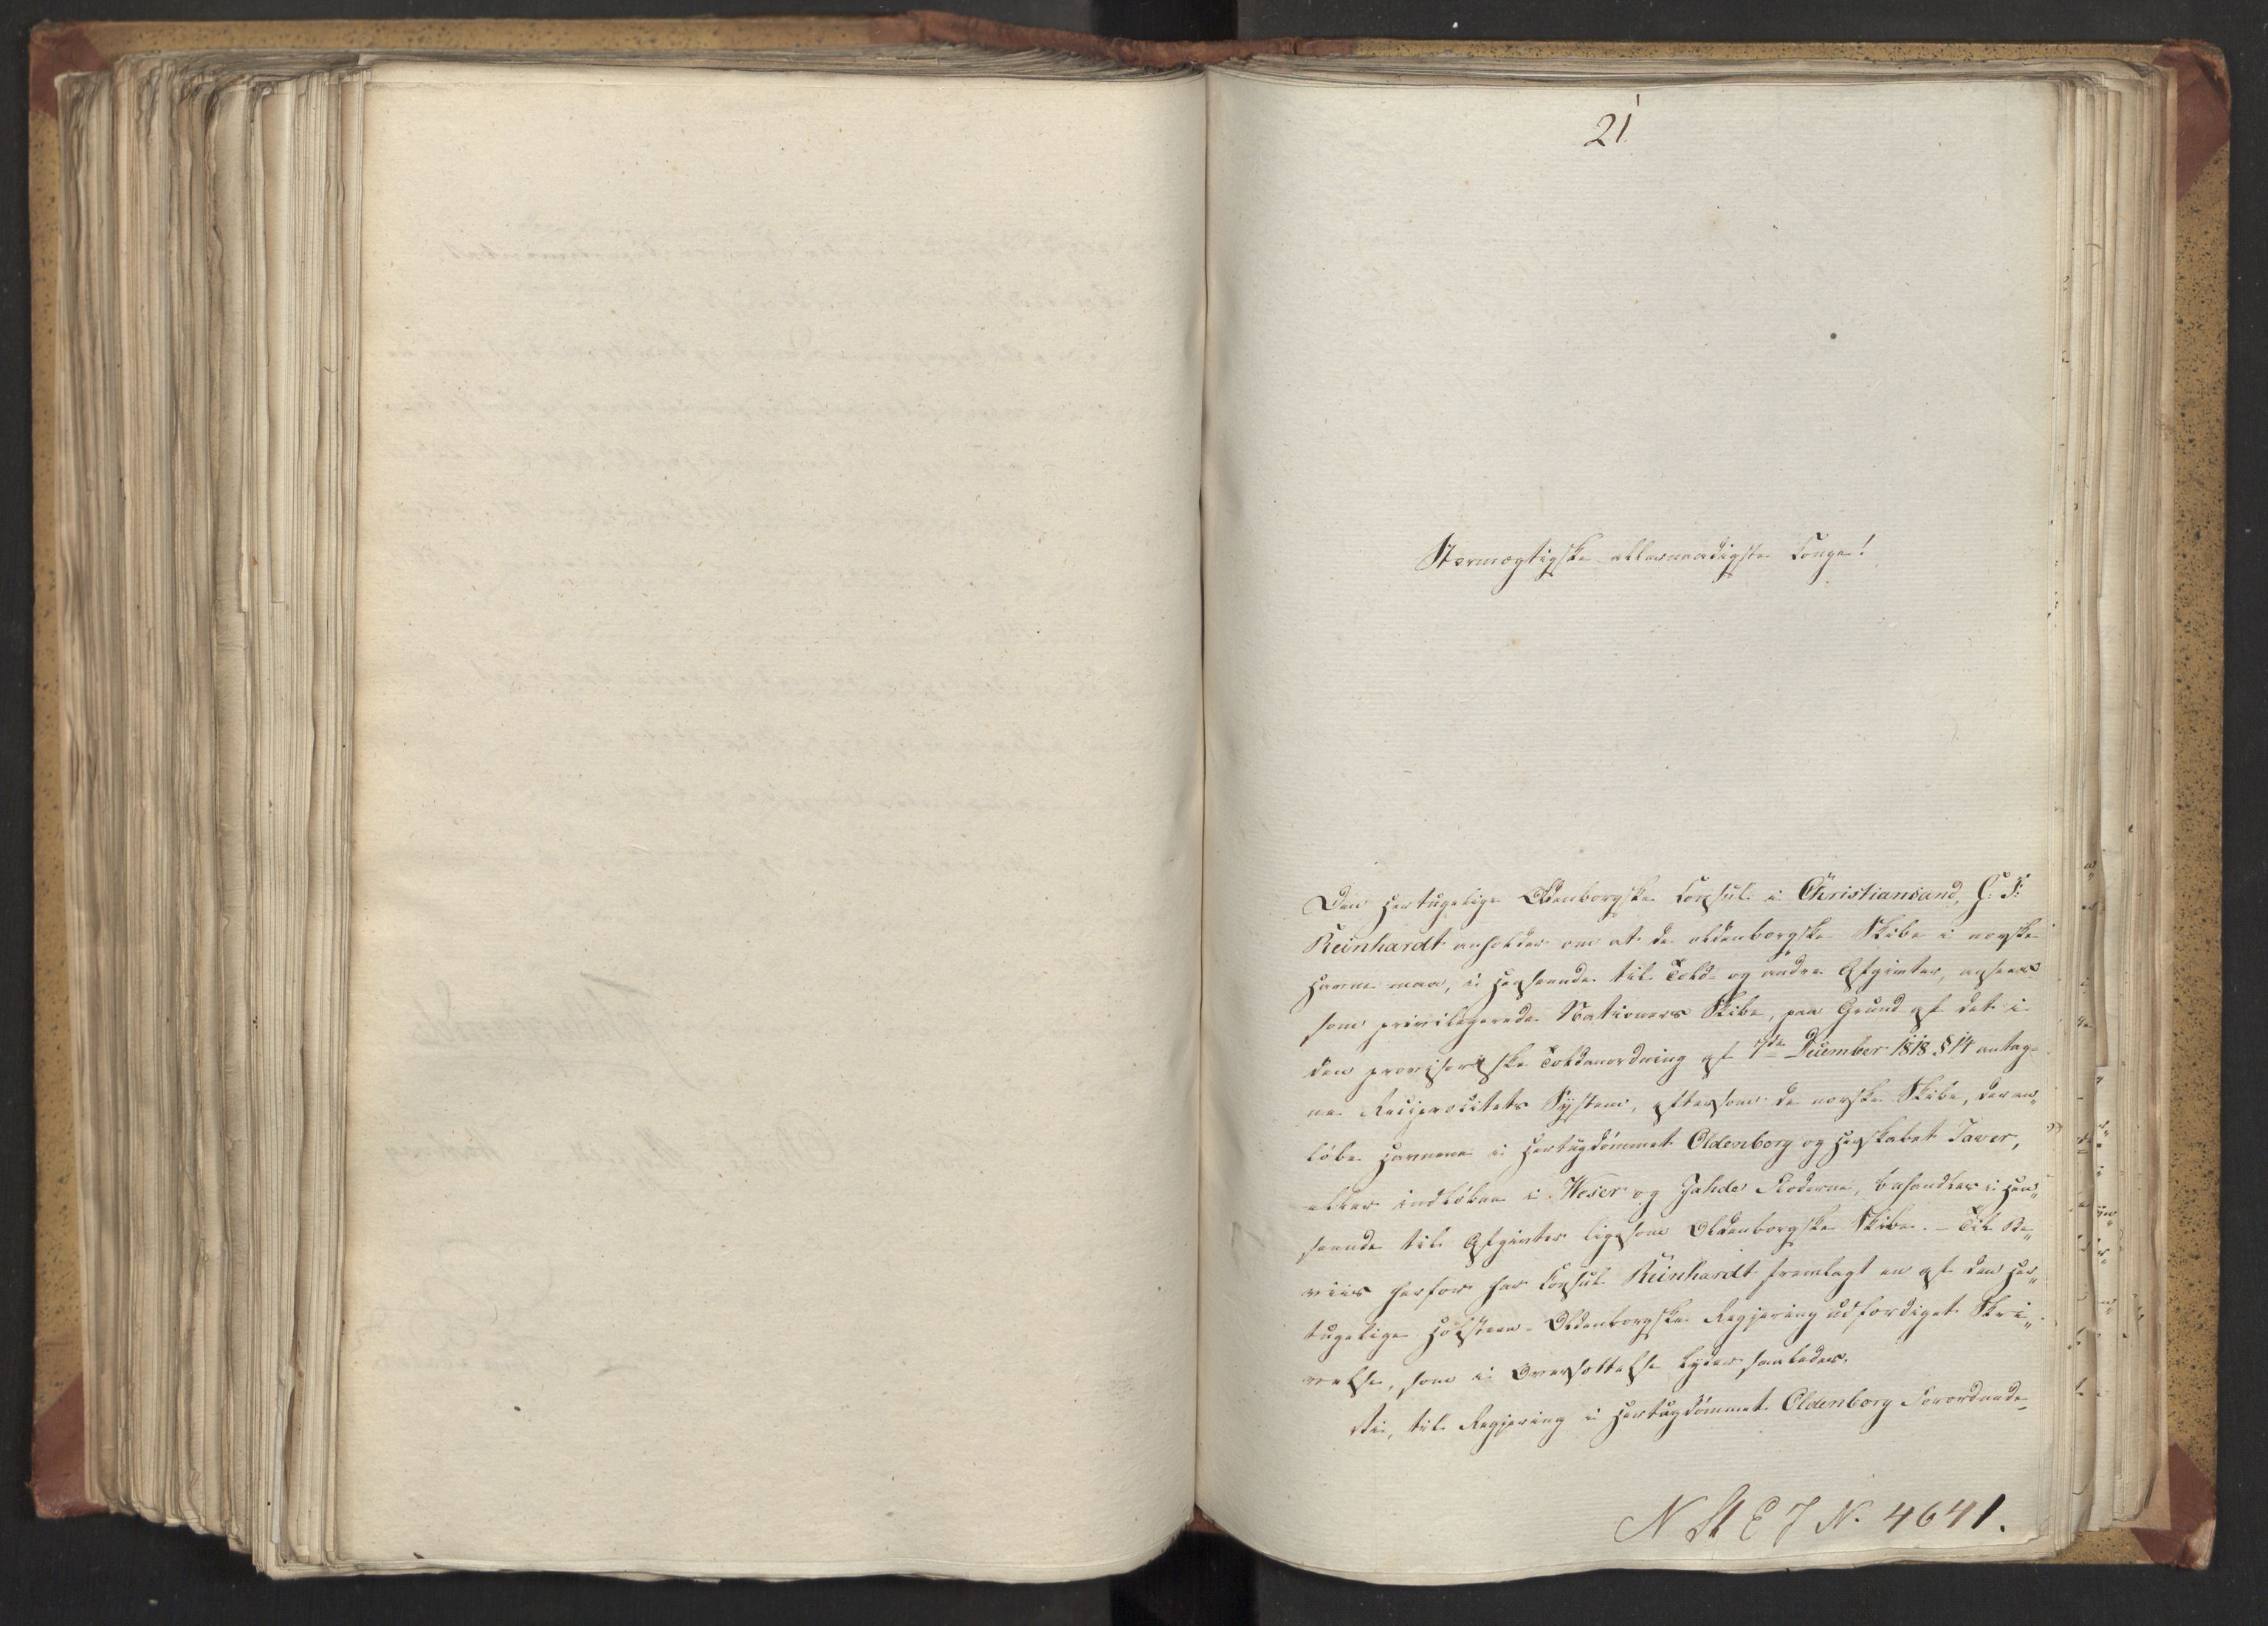 21
Stormægtigste allernaadigste Konge!
Den Hertugelige Oldenborgske Consul i Christiansand, C: F:
Reinhardt anholder om at de oldenborgske Skibe i norske
Havne maa, i Henseende til Told- og andre Afgivter, ansees
som privilegerede Nationers Skibe, paa Grund af det i
den provisoriske Toldanordning af 7de December 1818 § 14 antag-
ne Reciprocitets System, eftersom de norske Skibe, der an„
løbe Havnene i Hertugdømmet Oldenborg og Herskabet Jever,
eller indløbe i Weser og Jahde Floderne, behandles i Hen„
seende til Afgivter ligesom Oldenborgske Skibe. - Til Be„
viis herfor har Consul Reinhardt fremlagt en af den Her„
tugelige Holsteen-Oldenborgske Regjering udfærdiget Skri„
velse, som i Oversættelse lyder saaledes.
Vi, til Regjering i Hertugdømmet Oldenborg Forordnede
N St E J N. 4641.